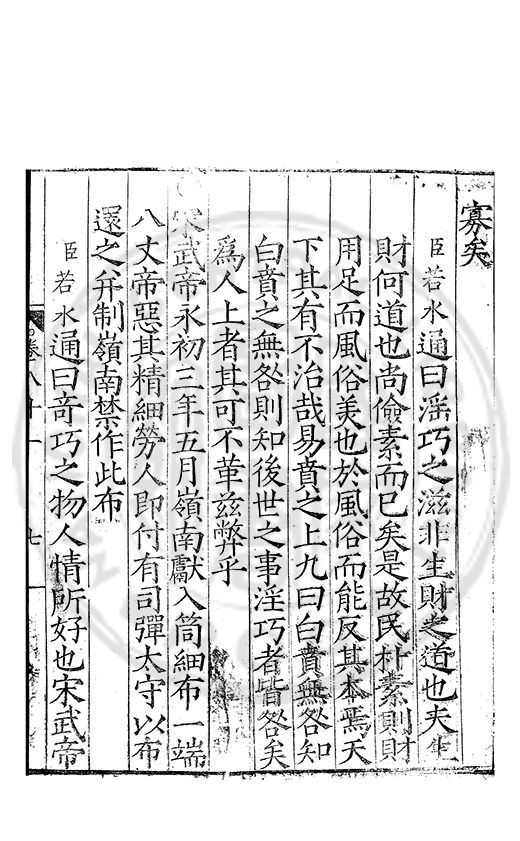 寡矣
臣若水通曰淫巧之滋非生財之道也夫生
財何道也尚儉素而已矣是故民朴素則財
用足而風俗美也於風俗而能反其本焉天
下其有不治哉易賁之上九曰白賁無咎知
白賁之無咎則知後世之事淫巧者皆咎矣
為人上者其可不革兹弊乎
宋武帝永初三年五月嶺南獻入筒細布一端
八丈帝惡其精細勞人即付有司彈太守以布
還之并制嶺南禁作此布
臣若水通曰奇巧之物人情所好也宋武帝
卷八十一
七